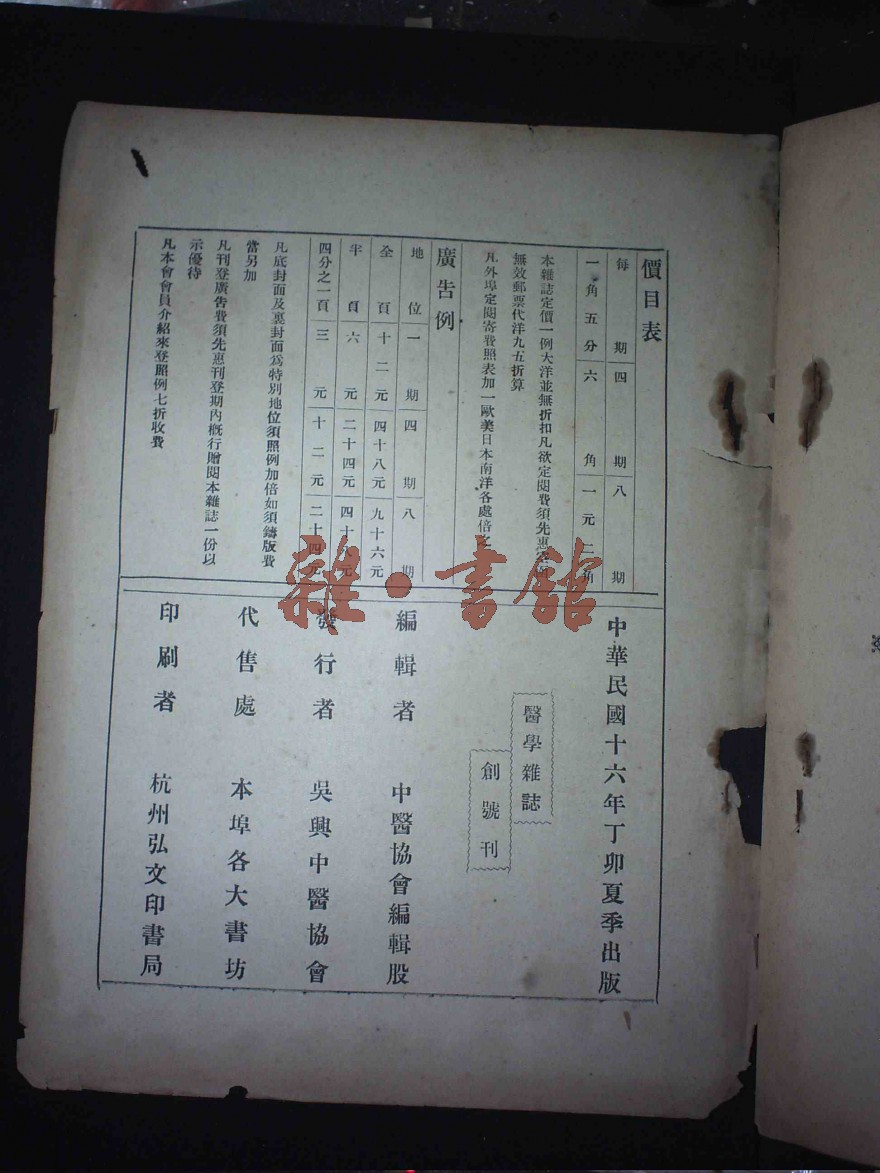 價目表
每期四期八期
一角五分六角一元二角
本雜誌定價一例大洋並無折扣凡欲定閱費須先惠寄例
無效郵票代洋九五折算
凡外埠定閱寄費照表加一歐美日本南洋各處倍之
廣告例
地位一期四期八期
全頁十二元四十八元九十六元
半頁六元二十四元四十八元
四分之一頁三元十二元二十四元
凡底封面及裏封面爲特別地位須照例加倍如須鑄版費
當另加
凡刊登廣告費須先惠刊登期內概行贈閱本雜誌一份以
示優待
凡本會會員介紹來登照例七折收費
中華民國十六年丁卯夏季出版
醫學雜誌
創號刊
編輯者 中醫協會編輯股
發行者 吳興中醫協會
代售處 本埠各大書坊
印刷者 杭州弘文印書局
雜·書館